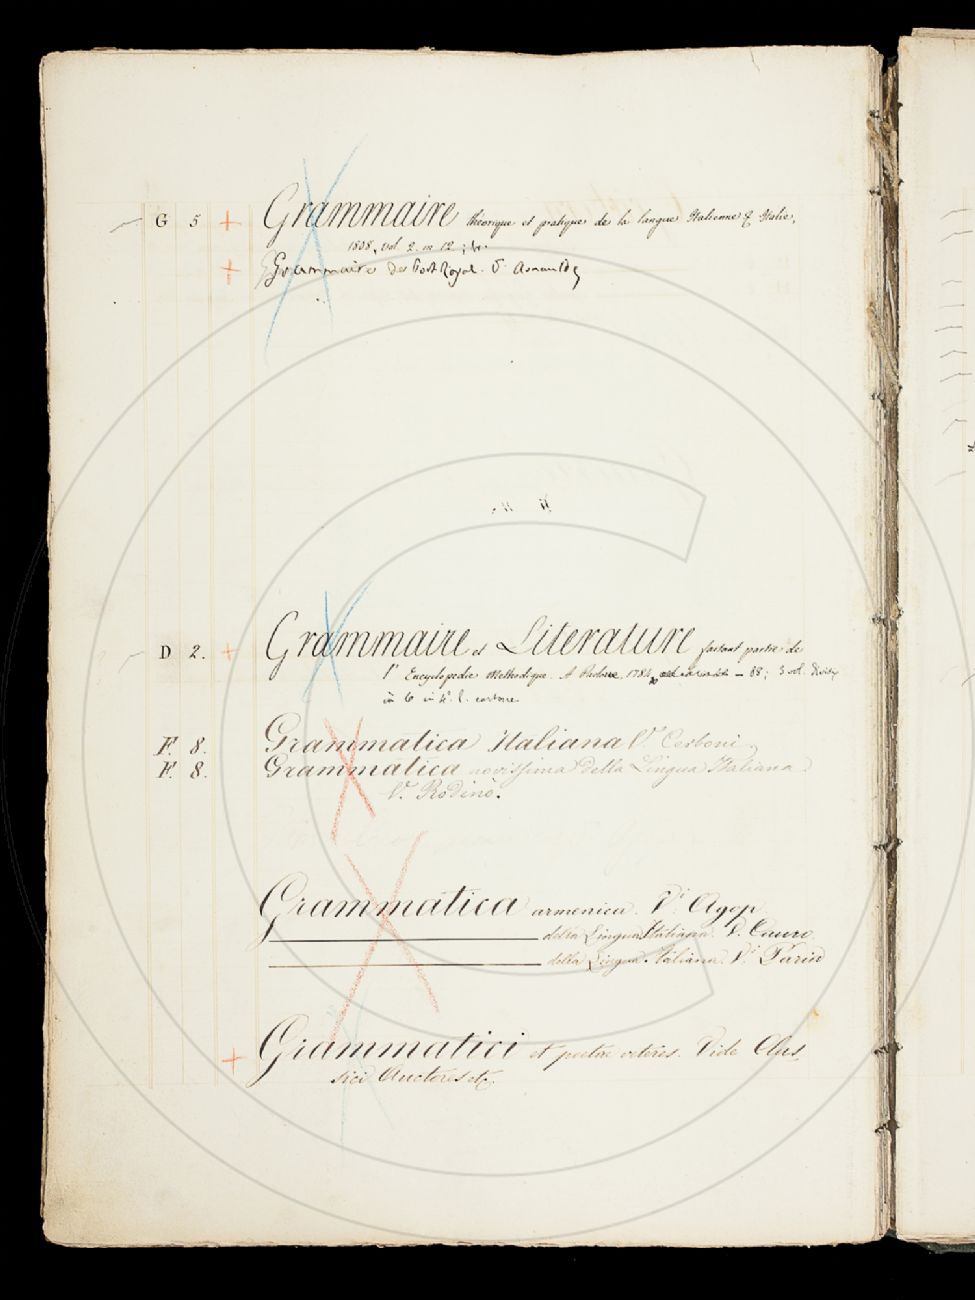 G 5 + Grammaire théorique et pratique de la langue Italienne Italie,
1808, vol. 2. in 12;
+ Grammaire de Port Royal. V. Arnauld
D 2. + Grammaire et Literature faisant partie de
l' Encyclopedie Methodique. A Padoue, 1784 – 88; 3 vol.
in 6 in 4.
F. 8. Grammatica Italiana V. Cerboni.
F. 8. Grammatica novissima della Lingua Italiana.
V. Rodinò.
Grammatica armenica. V. Agop
della Lingua Italiana. V. Cauro.
della Lingua Italiana. V.
+ Grammatici et veteres. Vide Clas
sici Auctores etc.